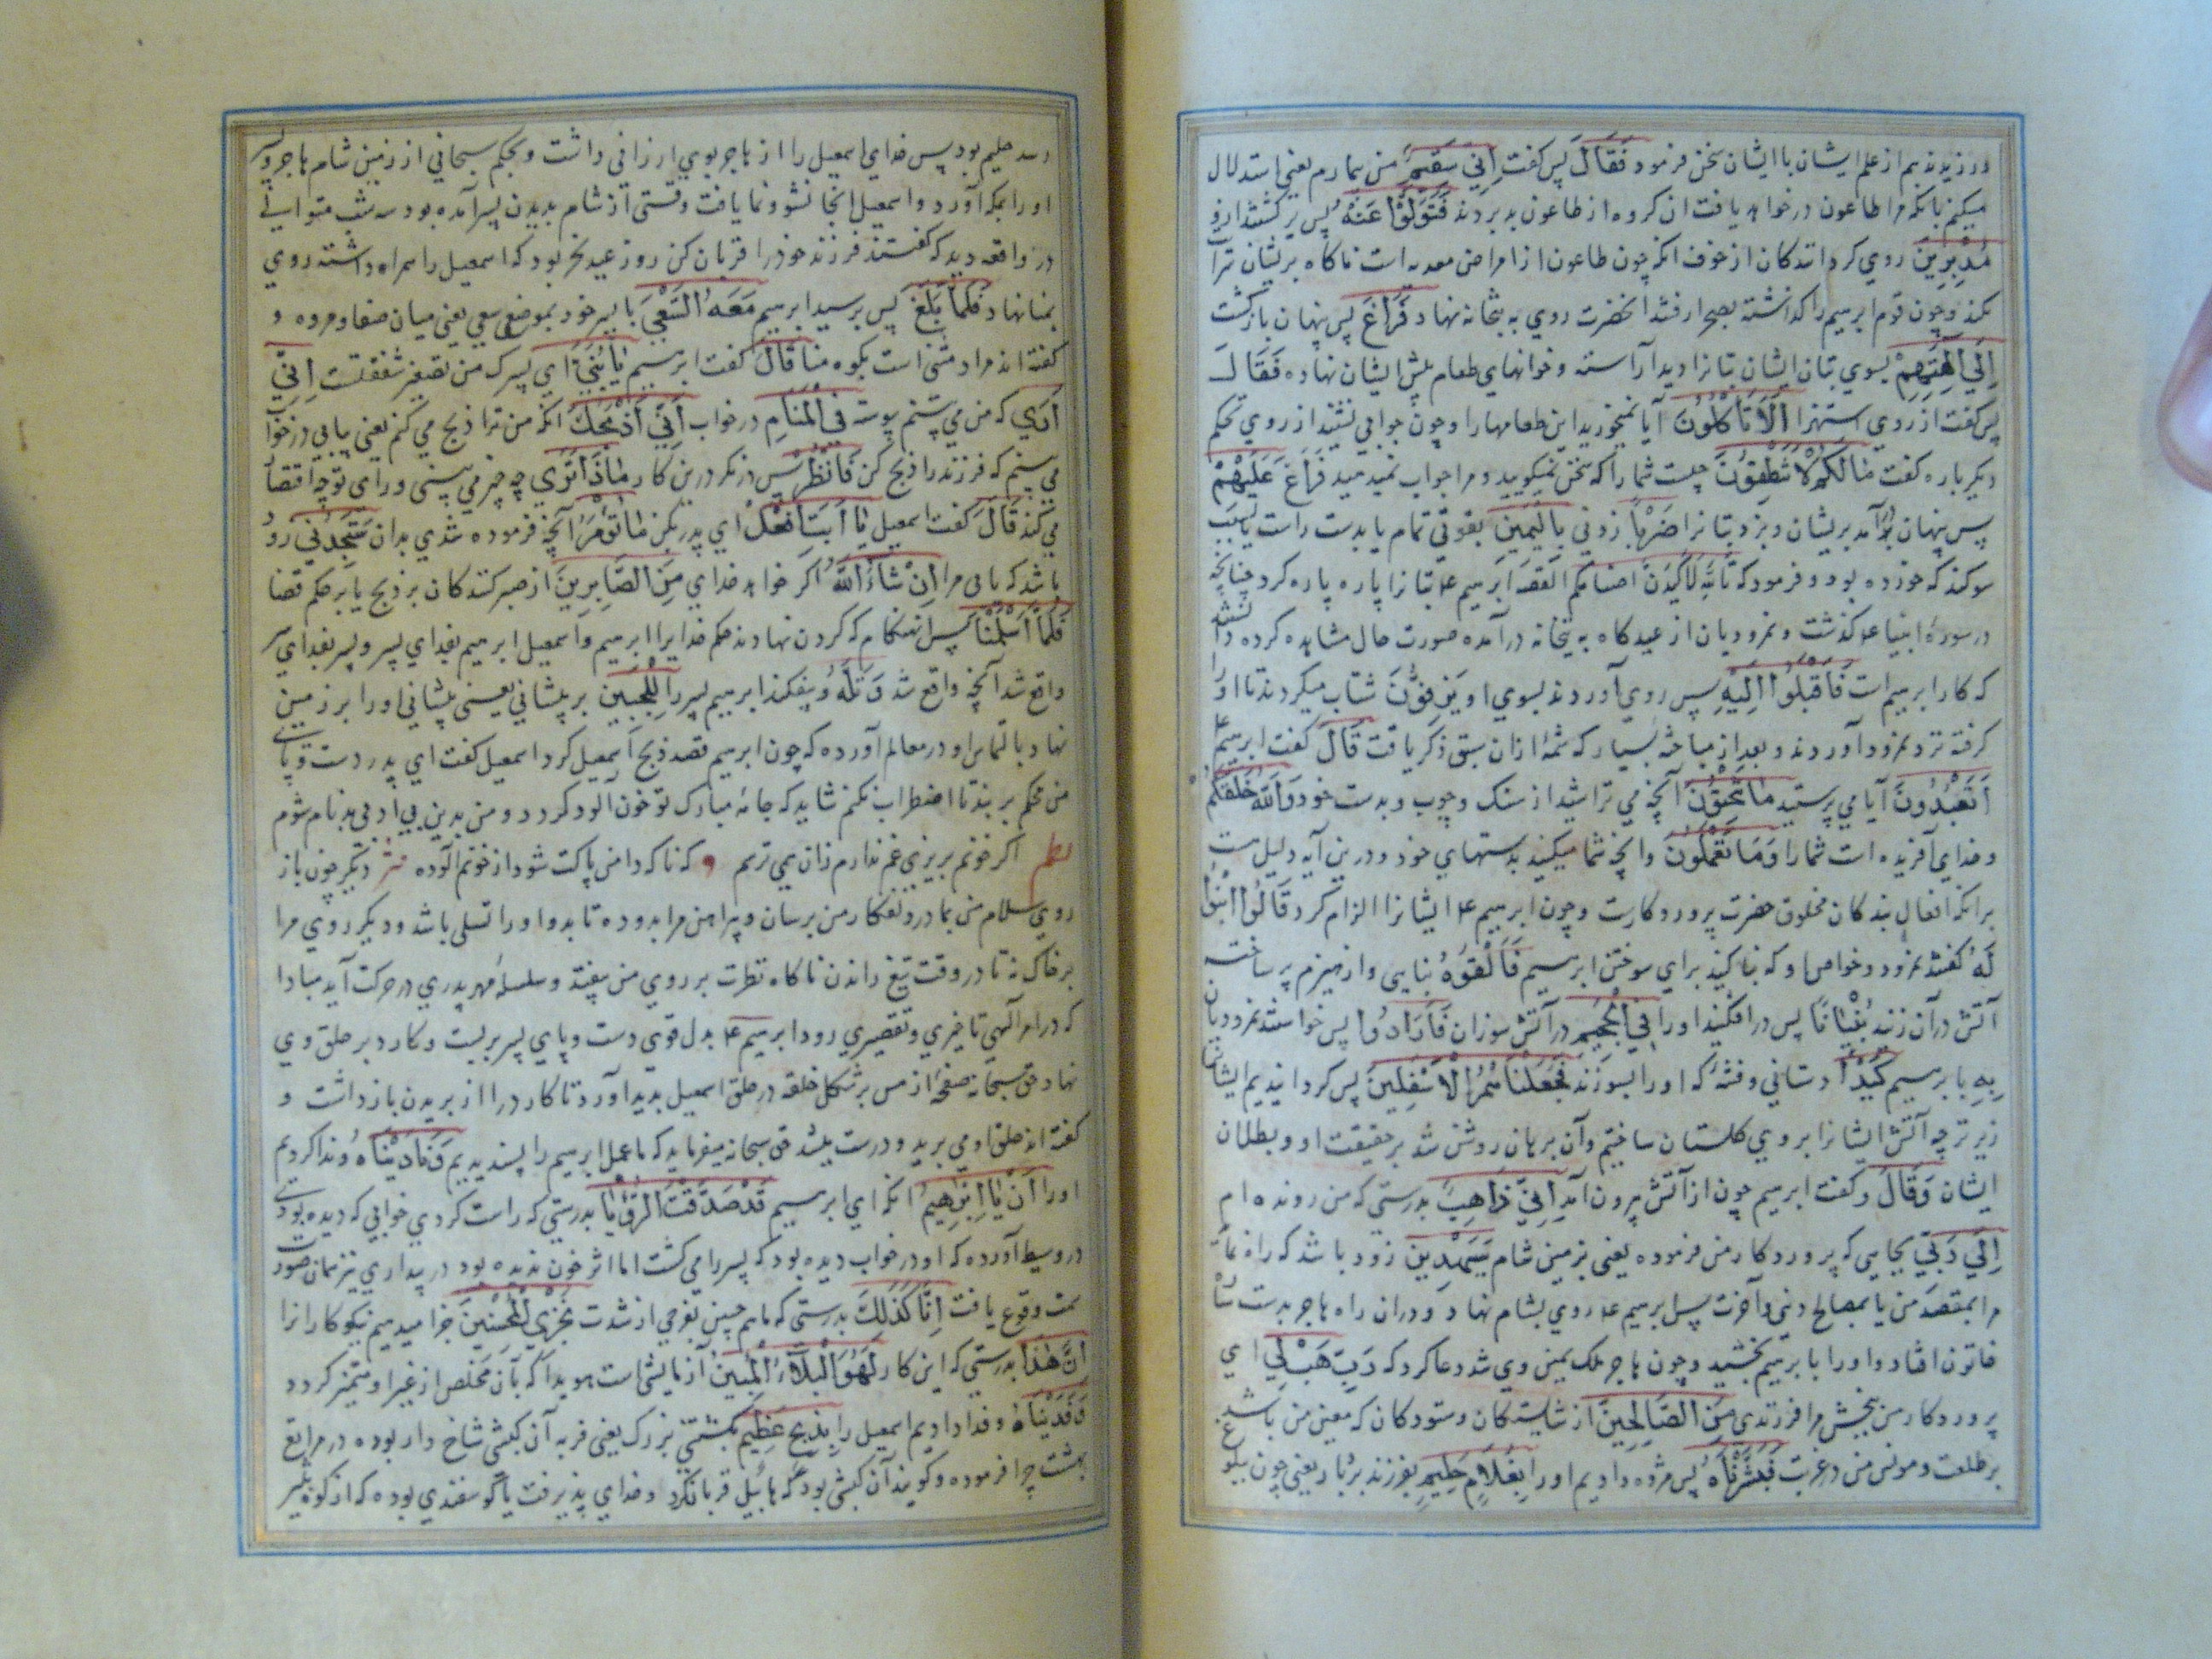 ورزیدند هم از علم ایشان با ایشان سخن فرمود فَقَالَ پس گفت اِنِّي سَقِيمٌ من بیمارم یعنی استدلال
میکنم بانکه مرا طاعون در خواهد یافت ان کروه از طاعون بد بردند فَتَوَلَّوْا عَنْهُ پس برکشتند ازو
مُدْبِرِينَ روي کردانندکان از خوف انکه چون طاعون از امراض معدیه است ناکاه بریشان سرایت
نکند و چون قوم ابرهیم را کذاشته بصحرا رفتند انحضرت روي به بتخانه نهاد فَرَاغَ پس پنهان بازکشت
اِلَى آلِهَتِهِمْ بسوي بتان ایشان بتانرا دید آراسته و خوانهاي طعام پیش ایشان نهاده فَقَالَ
پس گفت از روي استهزا اَلَا تَأْكُلُونَ آیا نمیخورید این طعامها را و چون جوابي نشنید از روي تحکم
دیکر باره کفت مَا لَكُمْ لَا تَنْطِقُونَ چیست شما را که سخن نمیکویید و مرا جواب نمیدهید فَرَاغَ عَلَيْهِمْ
پس پنهان در آمد بریشان و بزد بتانرا ضَرْبًا زدني بِالْيَمِينِ بقوتي تمام یا بدست راست یا بسبب
سوکند که خورده بود و فرمود که تَاللَّهِ لَأَكِيدَنَّ اصنامکم القصه ابرهیم ع بتانرا پاره پاره کرد چنانچه
در سورۀ انبیا ع کذشت و نمرودیان از عیدکاه به بتخانه در آمده صورت حال مشاهده کرده دانستند
که کار ابرهیم است فَاَقْبَلُوا اِلَيْهِ پس روي آوردند بسوي او يَزِفُّونَ شتاب میکردند تا او را
کرفته نزد نمرود آوردند و بعد از مباحثه بسیار که شمۀ ازان سبق ذکر یافت قَالَ کفت ابرهیم ع
اَتَعْبُدُونَ آیا مي پرستید مَا تَنْحِتُونَ آنچه مي تراشید از سنک و چوب و بدست خود وَاللَّهُ خَلَقَكُمْ
و خداي آفریده است شما را وَمَا تَعْمَلُونَ و انچه شما میکنید بدستهاي خود و درین آیه دلیلست
برانکه افعال بندکان مخلوق حضرت پروردکارست و چون ابرهیم ع ایشانرا الزام کرد قَالُوا ابْنُوا
لَهُ کفتند نمرود و خواص او که بنا کنید براي سوختن ابرهیم فَاَلْقُوهُ بنایي و از هیزم پر ساخته
آتش در آن زنید بُنْيَانًا پس در افکنید او را فِي الْجَحِيمِ در آتش سوزان فَاَرَادُوا پس خواستند نمرودیان
بِهِ با برهیم كَيْدًا دستاني و فتنۀ که او را بسوزند فَجَعَلْنَاهُمُ الْاَسْفَلِينَ پس کردانیدیم ایشانرا
زیرتر چه آتش ایشانرا بروي کلستان ساختیم و آن برهان روشن شد بر حقیقت او و بطلان
ایشان وَقَالَ و کفت ابرهیم چون از آتش بیرون آمد اِنِّي ذَاهِبٌ بدرستي که من رونده ام
اِلَى رَبِّي بجایي که پروردکار من فرموده یعني بزمین شام سَيَهْدِينِ زود باشد که راه نماید
مرا بمقصد من یا بمصالح دنیي و آخرت پس ابرهیم ع روي بشام نهاد و دران راه هاجر بدست سارا
خاتون افتاد و او را با برهیم بخشید و چون هاجر ملک یمین وي شد دعا کرد که رَبِّ هَبْ لِي اي
پروردکار من ببخش مرا فرزندي مِنَ الصَّالِحِينَ از شایستکان و ستودکان که معین من باشد
بر طاعت و مونس من در غربت فَبَشَّرْنَاهُ پس مژده دادیم او را بِغُلَامٍ حَلِيمٍ بفرزند بردبار یعني چون ببلوغ
رسد حلیم بود پس خداي اسمعیل را از هاجر بوي ارزاني داشت و بحکم سبحاني از زمین شام هاجر و پسر
او را بمکه آورد و اسمعیل انجا نشو و نما یافت وقتي از شام بدیدن پسر آمده بود سه شب متوالي
در واقعه دید که کفتند فرزند خود را قربان کن روز عید نحر بود که اسمعیل را همراه داشته روي
بمنا نهاد فَلَمَّا بَلَغَ پس برسید ابرهیم مَعَهُ السَّعْيَ با پسر خود بموضع سعي یعني میان صفا و مروه و
کفته اند مراد مشي است بکوه منا قَالَ کفت ابرهیم يَا بُنَيَّ اي پسرک من تصغیر شفقتست اِنِّي
اَرَى که من مي بینم پیوسته فِي الْمَنَامِ در خواب اَنِّي اَذْبَحُكَ انکه من ترا ذبح مي کنم یعني پیاپي در خواب
مي بینم که فرزند را ذبح کن فَانْظُرْ پس درنکر درین کار مَاذَا تَرَى چه چیز مي بیني و راي تو چه اقتضا
مي کند قَالَ کفت اسمعیل يَا اَبَتِ افْعَلْ اي پدر بکن مَا تُؤْمَرُ آنچه فرموده شدي بدان سَتَجِدُنِي زود
باشد که یابي مرا اِنْ شَاءَ اللَّهُ اکر خواهد خداي مِنَ الصَّابِرِينَ از صبر کنندکان بر ذبح یا بر حکم قضا
فَلَمَّا اَسْلَمَا پس انهنکام که کردن نهادند حکم خدایرا ابرهیم و اسمعیل ابرهیم بفداي پسر و پسر بفداي سر
واقع شد آنچه واقع شد وَتَلَّهُ و بیفکند ابرهیم پسر را لِلْجَبِينِ بر پیشاني یعني پیشاني او را بر زمین
نهاد بالتماس او در معالم آورده که چون ابرهیم قصد ذبح اسمعیل کرد اسمعیل کفت اي پدر دست و پاي
من محکم بر بند تا اضطراب نکنم شاید که جامۀ مبارک تو خون آلود کردد و من بدین بي ادبي بدنام شوم
نظم اکر خونم بریزي غم ندارم زان همي ترسم ۹ که ناکه دامن پاکت شود از خونم آلوده نثر دیکر چون باز
روي سلام من بمادر دلفکار من برسان و پیراهن مرا بدو ده تا بدو او را تسلي باشد و دیکر روي مرا
بر خاک نه تا در وقت تیغ راندن ناکاه نظرت بر روي من نیفتد و سلسلۀ مهر پدري در حرکت آید مبادا
که در امر آلهي تاخیري و تقصیري رود ابرهیم ع بدل قوي دست و پاي پسر بربست و کارد بر حلق وي
نهاد حق سبحانه صفحۀ از مس بر شکل حلقه در حلق اسمعیل پدید آورد تا کارد را از بریدن بازداشت و
کفته اند حلق او مي برید و درست میشد حق سبحانه میفرماید که ما عمل ابرهیم را پسندیدیم وَنَادَيْنَاهُ و ندا کردیم
او را اَنْ يَا اِبْرَاهِيمُ انکه اي ابرهیم قَدْ صَدَّقْتَ الرُّؤْيَا بدرستي که راست کردي خوابي که دیده بودي
در وسیط آورده که او در خواب دیده بود که پسر را مي کشت اما اثر خون ندیده بود در بیداري نیز همان صورت
سمت وقوع یافت اِنَّا كَذَلِكَ بدرستي که ما همچنین بفرجي از شدت نَجْزِي الْمُحْسِنِينَ جزا میدهیم نیکوکارانرا
اِنَّ هَذَا بدرستي که این کار لَهُوَ الْبَلَاءُ الْمُبِينُ آزمایشي است هویدا که بآن مخلص از غیر او متمیز کردد
وَفَدَيْنَاهُ و فدا دادیم اسمعیل را بِذِبْحٍ عَظِيمٍ بکبشي بزرک یعني فربه آن کبشي شاخ دار بوده در مراتع
بهشت چرا فرموده و کویند آن کبشي بود که هابیل قربان کرد و خداي پذیرفت یا کوسفندي بوده که از کوه ثبیر